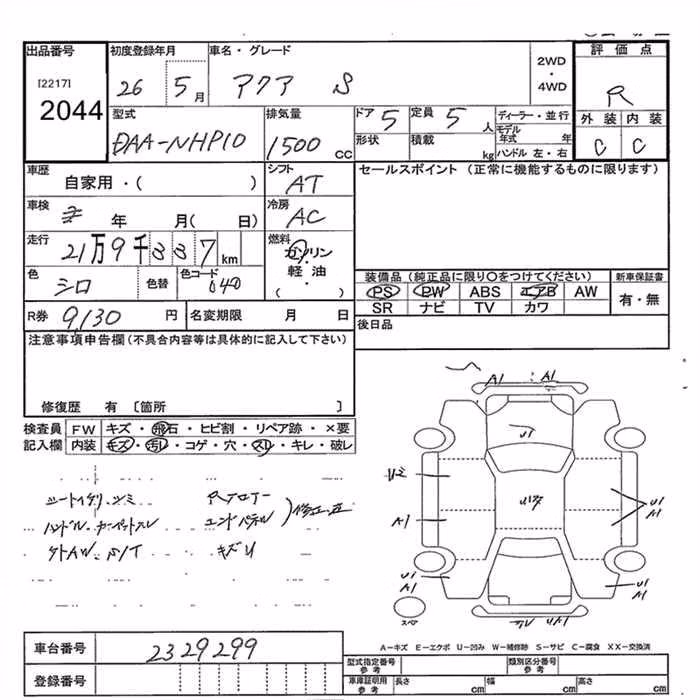 出品番号 初度登録年月 車名・グレード 評価点
[2217] 26 5月 アクア S 2WD・4WD R
2044
型式 排気量 ドア 5 定員 5人 ディーラー・並行 外装 内装
DAA-NHP10 1500cc 形状 積載 kg モデル年式 年 C C
ハンドル 左・右
車歴 自家用・( ) シフト AT セールスポイント(正常に機能するものに限ります)
車検 年 月( 日) 冷房 AC
走行 21万9千337km 燃料 ガソリン・軽油・( )
色 シロ 色替 色コード 040 装備品(純正品に限り○をつけてください) 新車保証書
PS PW ABS エアB AW 有・無
SR ナビ TV カワ
R券 9,130円 名変期限 月 日 後日品
注意事項申告欄(不具合内容等は具体的に記入して下さい)
修復歴 有 〔箇所 〕
検査員 FW キズ・飛石・ヒビ割・リペア跡・×要
記入欄 内装 キズ・汚レ・コゲ・穴・スレ・キレ・破レ
A1 A1
U1
A1 U1 A1
U1 A1 U1 A1
スペア
A-キズ E-エクボ U-凹み W-補修跡 S-サビ C-腐食 XX-交換済
車台番号 2329299
登録番号
型式指定番号 参考 類別区分番号 参考
車庫証明用 参考 長さ cm 幅 cm 高さ cm